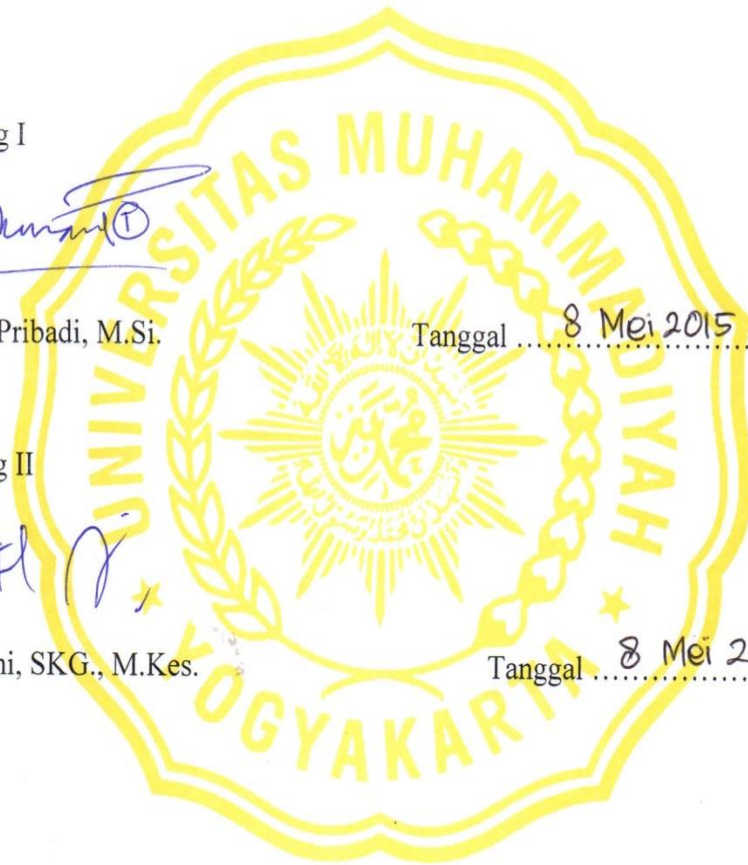 g I
Pribadi, M.Si.
Tanggal ...... 8 Mei 2015 ......
g II
ni, SKG., M.Kes.
Tanggal ...... 8 Mei 2
UNIVERSITAS MUHAMMADIYAH
YOGYAKARTA